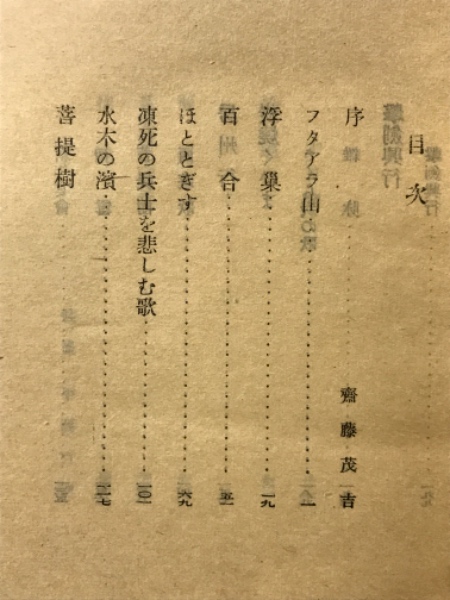 目次
序 齋藤茂吉
フタアラ山 一
浮巣 一九
百合 五一
ほととぎす 六九
凍死の兵士を悲しむ歌 一〇一
水木の濱 一一七
菩提樹